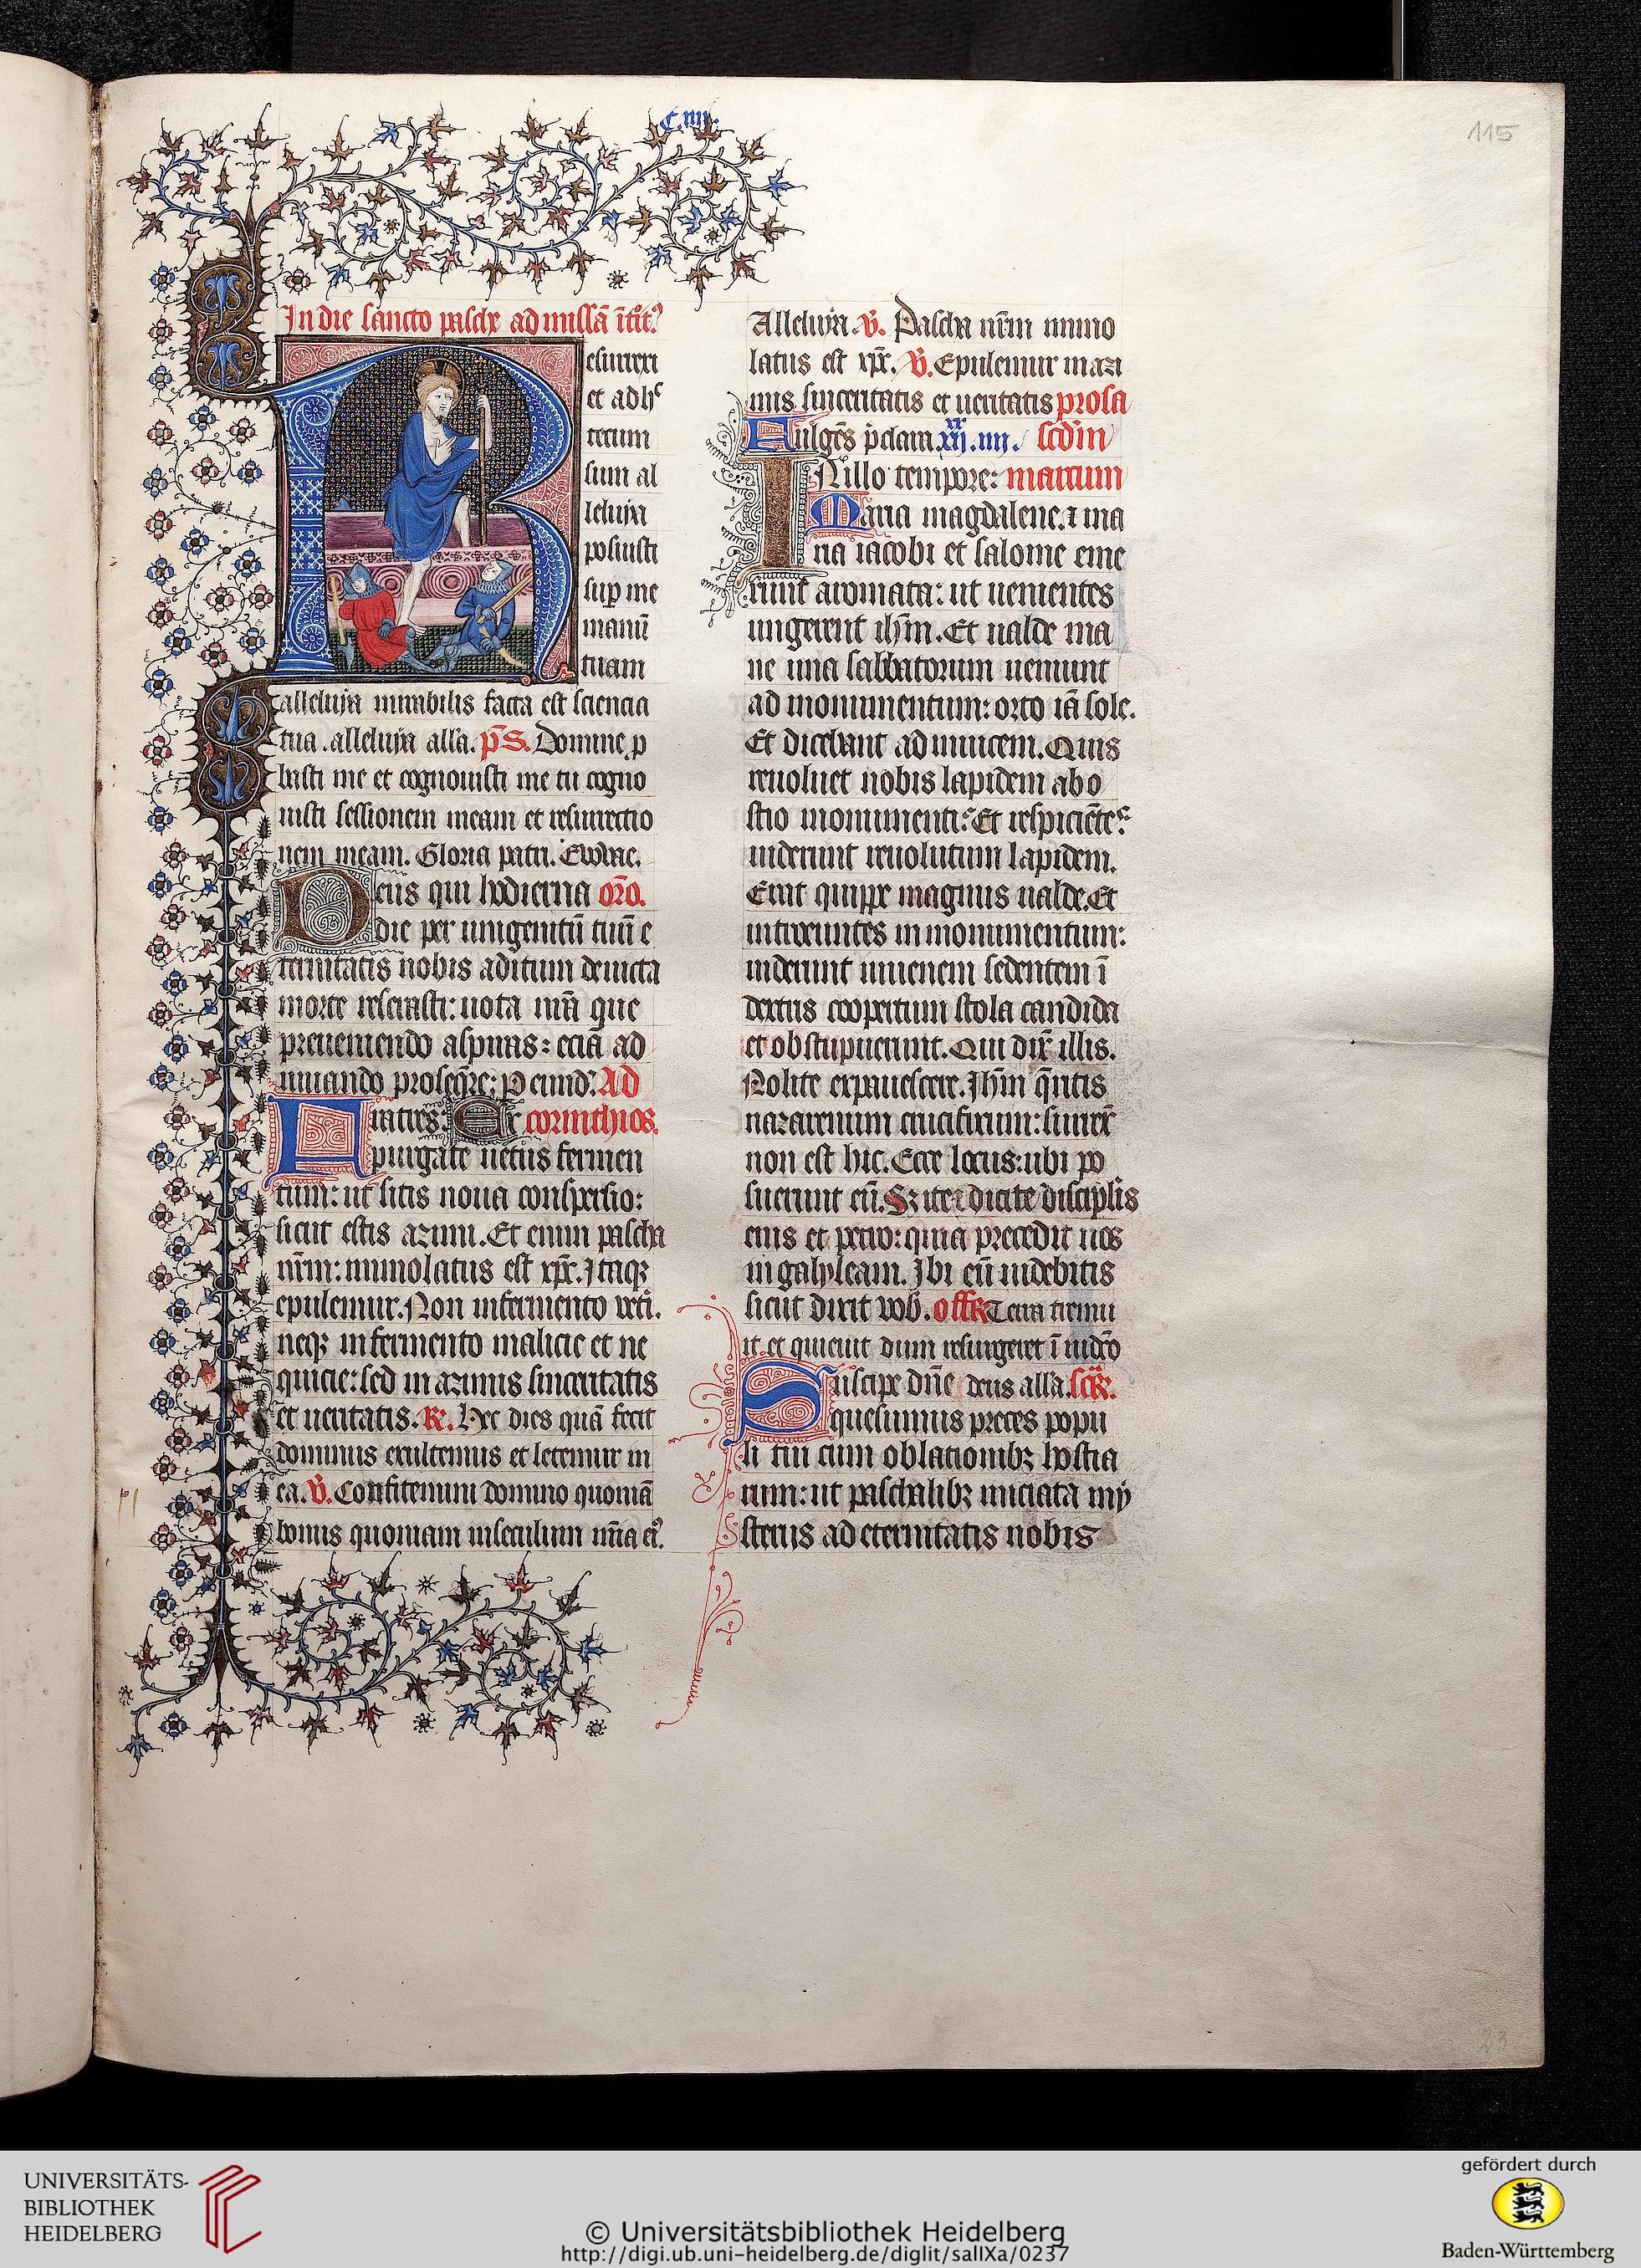 C.iiii.
115
In die sancto pasche ad missā ītroit⁹
Resurrexi
et adhᶜ
tecum
sum al
leluya
posuisti
suꝑ me
manū
tuam
alleluya mirabilis facta est sciencia
tua. alleluya all'a. p̄s. Domine ꝓ
basti me et cognouisti me tu cogno
uisti sessionem meam et resurrectio
nem meam. Gloria patri. Euouae.
Deus qui hodierna or̄o.
die per unigenitū tuū e
ternitatis nobis aditum deuicta
morte reserasti: uota nr̄a que
preueniendo aspiras: eciā ad
iuuando proseq̄re: ꝑ eund'. Ad
Fratres: Ex corinthios.
purgate uetus fermen
tum: ut sitis noua conspersio:
sicut estis azimi. Et enim pascha
nr̄m: immolatus est xp̄c. Itaqꝫ
epulemur. Non in fermento uet'i.
neqꝫ in fermento malicie et ne
quicie: sed in azimis sinceritatis
et ueritatis. ℟. Hec dies quā fecit
dominus exultemus et letemur in
ea. ℣. Confitemini domino quoniā
bonus quoniam in seculum mīa ei⁹.
Alleluya. ℣. Pascha nr̄m immo
latus est xp̄c. ℣. Epulemur in azi
mis sinceritatis et ueritatis prosa
Fulgēs p̄clara. xij.iiij. scd'm
IN illo tempore: marcum
Maria magdalene. ⁊ ma
ria iacobi et salome eme
runt aromata: ut uenientes
ungerent ih̄m. Et ualde ma
ne una sabbatorum ueniunt
ad monumentum: orto iā sole.
Et dicebant ad inuicem. Quis
reuoluet nobis lapidem ab o
stio monumenti: Et respiciētes
uiderunt reuolutum lapidem.
Erat quippe magnus ualde. Et
introeuntes in monumentum:
uiderunt iuuenem sedentem ī
dextris coopertum stola candida
et obstupuerunt. Qui dix̄ illis.
Nolite expauescere. Ih̄m q̄ritis
nazarenum crucifixum: surrex̄
non est hic. Ecce locus: ubi po
suerunt eū. Sꝫ ite ⁊ dicite discipl'is
eius et petro: quia precedit uos
in galyleam. Ibi eū uidebitis
sicut dixit uob'. offR Terra tremu
it et quieuit dum resurgeret ī iudīo
Suscipe dn̄e deus all'a. scR̄.
quesumus preces popu
li tui cum oblationibꝫ hostia
rum: ut paschalibꝫ iniciata my
steriis ad eternitatis nobis
23
UNIVERSITÄTS-
BIBLIOTHEK
HEIDELBERG
© Universitätsbibliothek Heidelberg
http://digi.ub.uni-heidelberg.de/diglit/salIXa/0237
gefördert durch
Baden-Württemberg